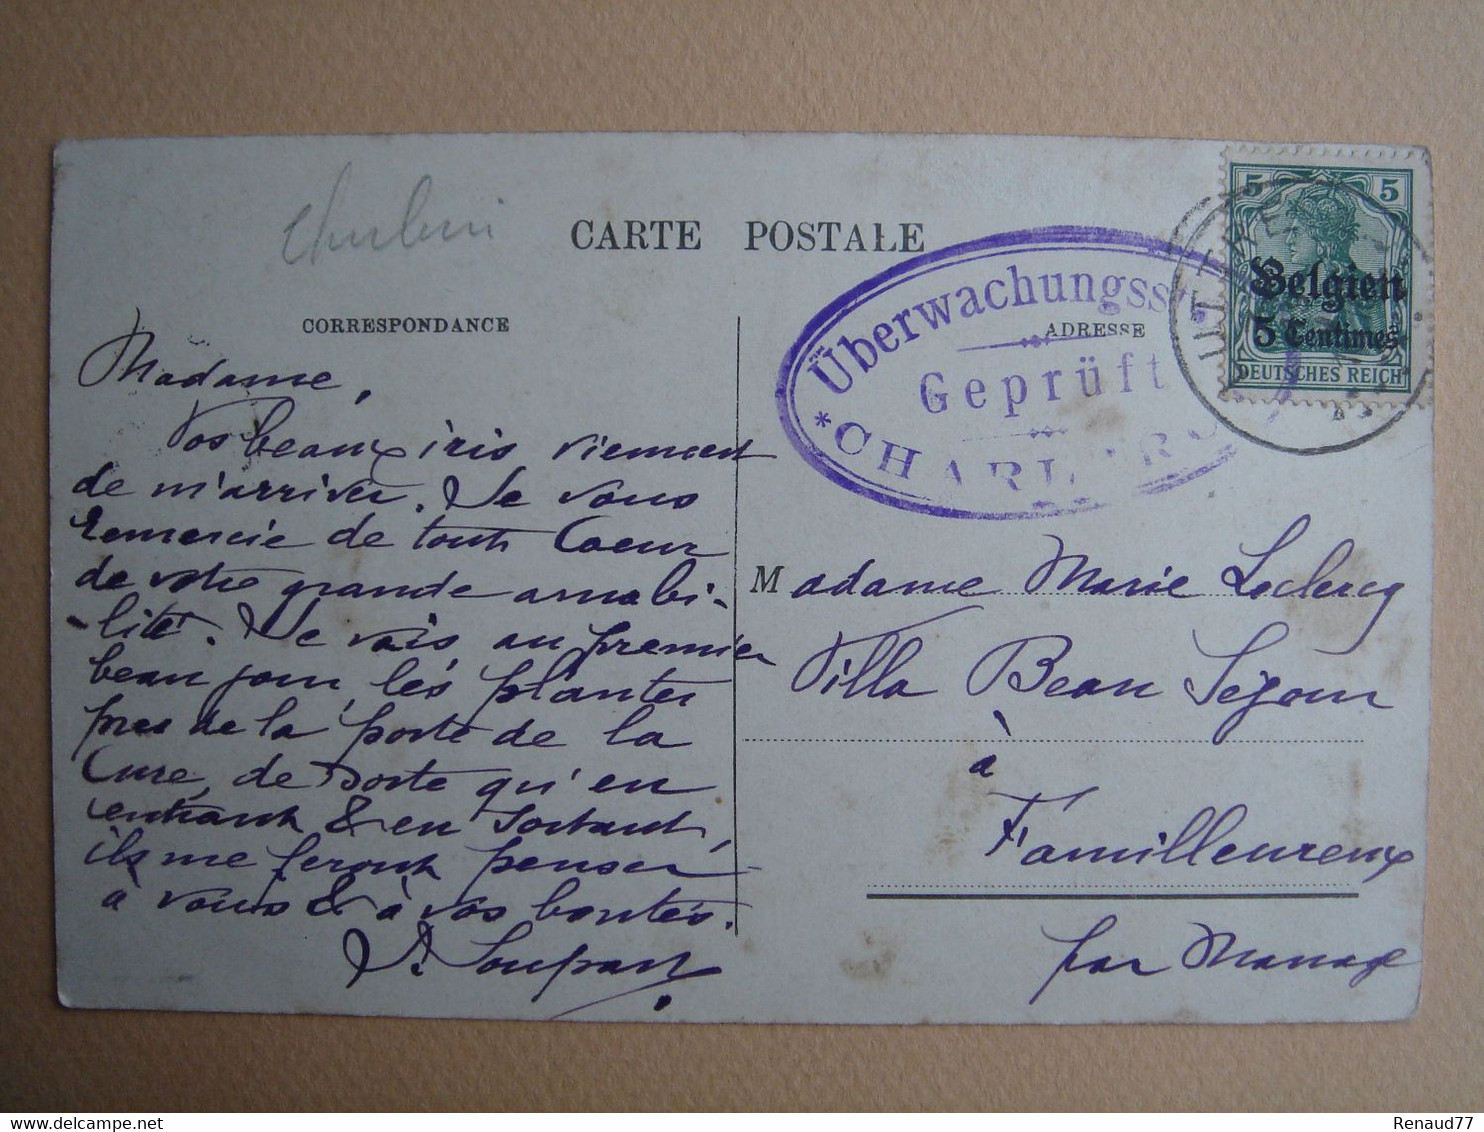 CARTE POSTALE
CORRESPONDANCE
Madame,
Vos beaux iris viennent
de m'arriver. Je vous
remercie de toute Coeur
de votre grande amabi-
-lité. Je vais au premier
beau jour, les planter
près de la porte de la
Cure, de sorte qu'en
entrant & en sortant,
ils me feront penser
à vous & à vos bontés.
J. Soupart
Überwachungsst
Geprüft
* CHARLER
ADRESSE
5 5
Belgien
5 Centimes
DEUTSCHES REICH
Madame Marie Leclercq
Villa Beau Séjour
à
Familleureux
par Manage
Renaud77